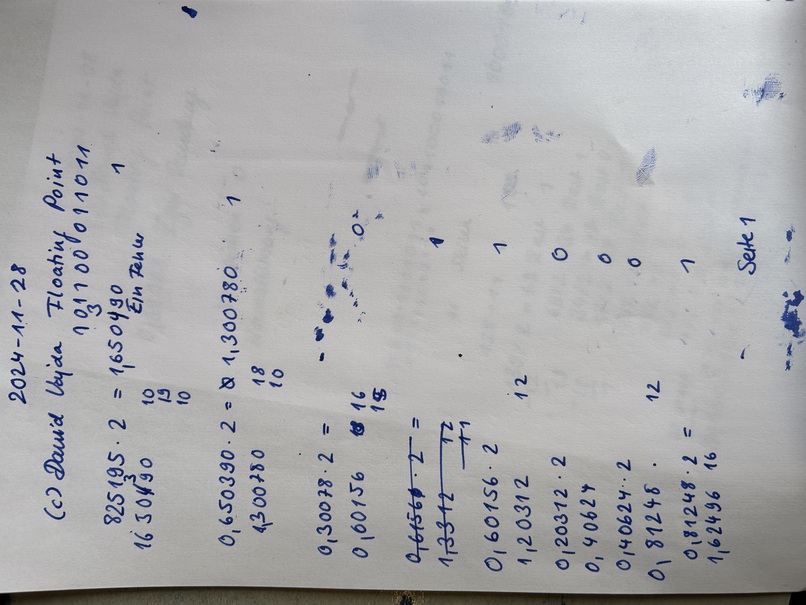 2024-11-28
(c) David Vajda Floating Point
101100011011
3
825195 · 2 = 1,650490 1
1650490 10 Ein Fehler
3 19
10
0,650390 · 2 = 1,300780 1
1,300780 18
10
0,30078 · 2 =
0,60156 16 0
15
0,61561 · 2 =
1,3312 12 1
11
0,60156 · 2 1
1,20312 12
0,20312 · 2 0
0,40624 0
0,40624 · 2 0
0,81248 · 12
0,81248 · 2 = 1
1,62496 16
Seite 1